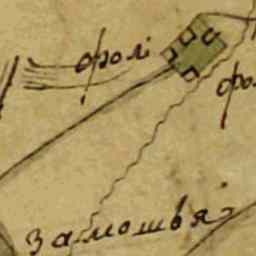 фролі
фрол
замошвя